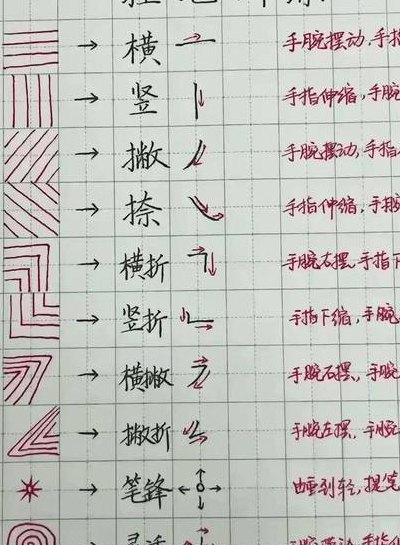 → 横 手腕摆动,手指
→ 竖 手指伸缩,手腕
→ 撇 手腕摆动,手指
→ 捺 手指伸缩,手腕
→ 横折 手腕右摆,手指下
→ 竖折 手指下缩,手腕
→ 横撇 手腕右摆,手腕
→ 撇折 手腕左摆,手腕
→ 笔锋 由重到轻,提笔